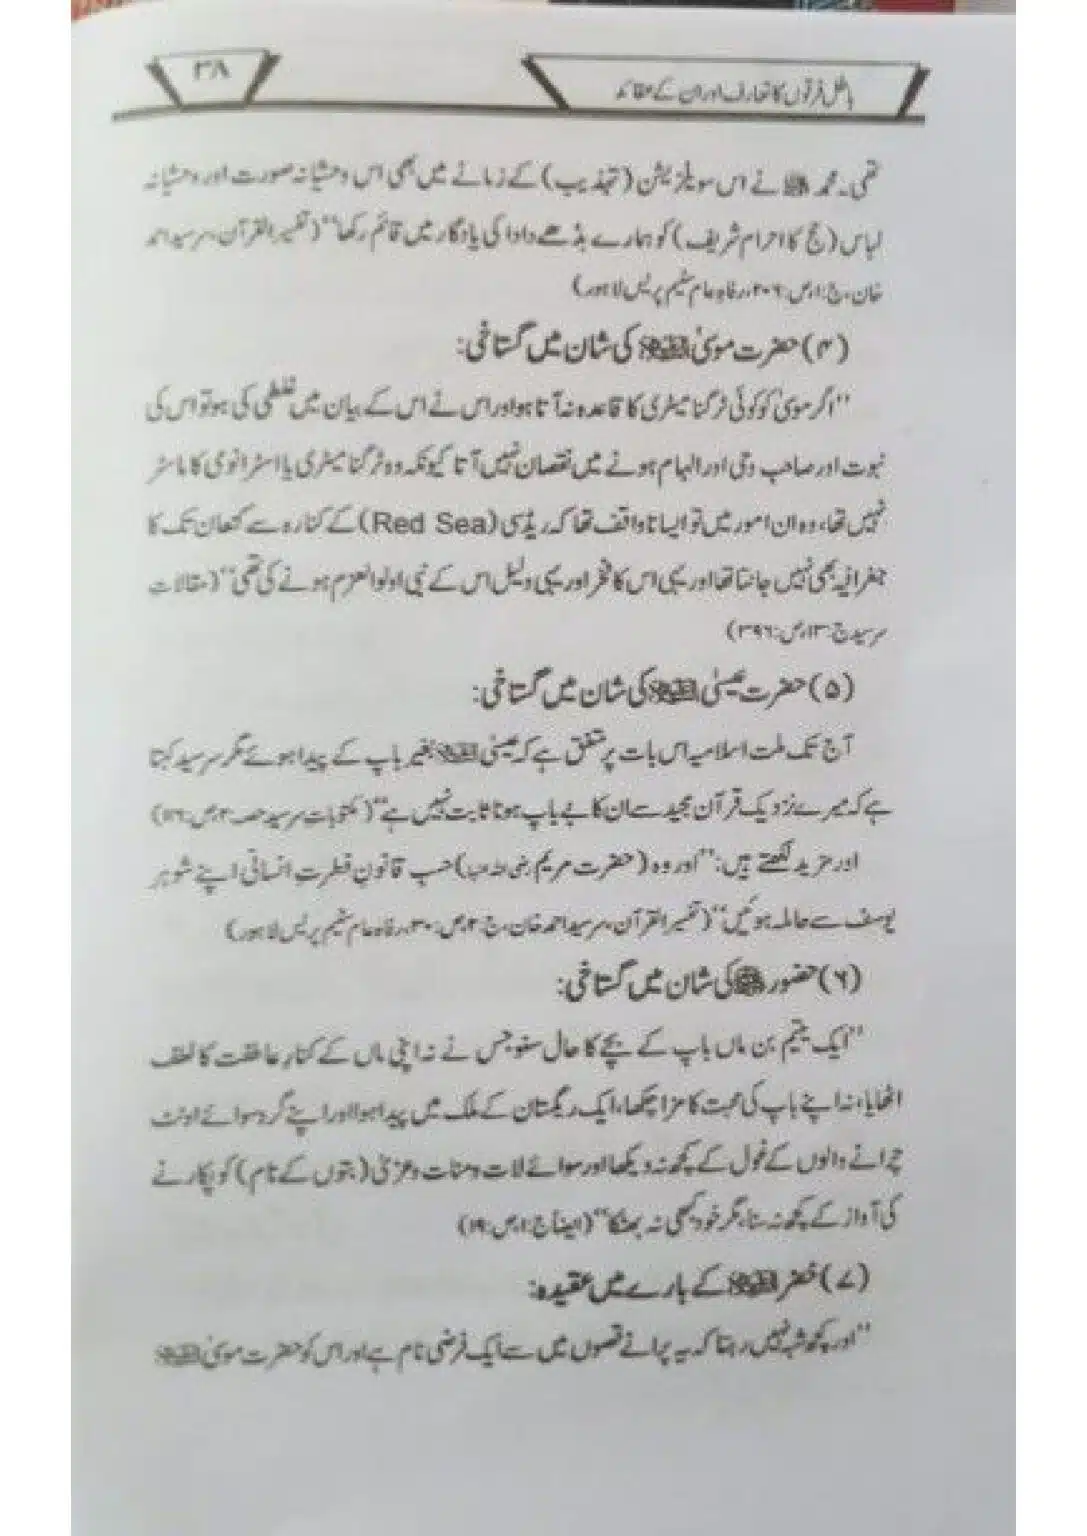 باطل فرقوں کا تعارف اور ان کے عقائد
۳۸
تھی۔ محمد ﷺ نے اس سویلزیشن (تہذیب) کے زمانے میں بھی اس وحشیانہ صورت اور وحشیانہ
لباس (حج کا احرام شریف) کو ہمارے بڈھے دادا کی یادگار میں قائم رکھا‘‘ (تفسیر القرآن، سرسید احمد
خان، ج:۱، ص:۲۰۶، رفاہ عام سٹیم پریس لاہور)
(۴) حضرت موسیٰ علیہ السلام کی شان میں گستاخی:
’’اگر موسیٰ کو کوئی ٹرگنا میٹری کا قاعدہ نہ آتا ہو اور اس نے اس کے بیان میں غلطی کی ہو تو اس کی
نبوت اور صاحب وحی اور الہام ہونے میں نقصان نہیں آتا کیونکہ وہ ٹرگنا میٹری یا اسٹرانومی کا ماسٹر
نہیں تھا، وہ ان امور میں تو ایسا ناواقف تھا کہ ریڈسی (Red Sea) کے کنارہ سے کنعان تک کا
جغرافیہ بھی نہیں جانتا تھا اور یہی اس کا فخر اور یہی دلیل اس کے نبی اولوالعزم ہونے کی تھی‘‘ (مقالات
سرسید ج:۱۳، ص:۳۹۶)
(۵) حضرت عیسیٰ علیہ السلام کی شان میں گستاخی:
آج تک ملت اسلامیہ اس بات پر متفق ہے کہ عیسیٰ علیہ السلام بغیر باپ کے پیدا ہوئے مگر سرسید کہتا
ہے کہ میرے نزدیک قرآن مجید سے ان کا بے باپ ہونا ثابت نہیں ہے‘‘ (مکتوبات سرسید حصہ ۲، ص:۱۱۶)
اور مزید لکھتے ہیں: ’’اور وہ (حضرت مریم رضی اللہ عنہا) حسب قانون فطرت انسانی اپنے شوہر
یوسف سے حاملہ ہوئیں‘‘ (تفسیر القرآن، سرسید احمد خان، ج:۲، ص:۳۰، رفاہ عام سٹیم پریس لاہور)
(۶) حضور ﷺ کی شان میں گستاخی:
’’ایک یتیم بن ماں باپ کے بچے کا حال سنو جس نے نہ اپنی ماں کے کنار عاطفت کا لطف
اٹھایا، نہ اپنے باپ کی محبت کا مزا چکھا، ایک ریگستان کے ملک میں پیدا ہوا اور اپنے گرد سوائے اونٹ
چرانے والوں کے غول کے کچھ نہ دیکھا اور سوائے لات ومنات وعزیٰ (بتوں کے نام) کو پکارنے
کی آواز کے کچھ نہ سنا، مگر خود کبھی نہ بھٹکا‘‘ (ایضاً ج:۱، ص:۱۹)
(۷) خضر علیہ السلام کے بارے میں عقیدہ:
’’اور کچھ شبہ نہیں رہتا کہ یہ پرانے قصوں میں سے ایک فرضی نام ہے اور اس کو حضرت موسیٰ علیہ السلام